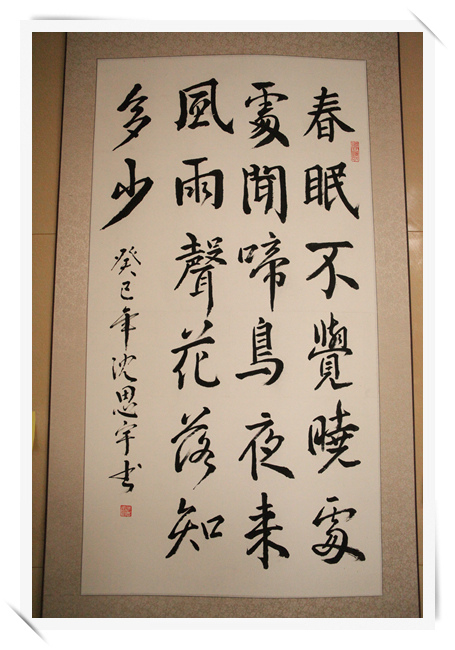 春眠不覺曉處
處聞啼鳥夜来
風雨聲花落知
多少
癸巳年沈思宇书